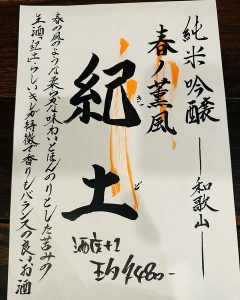 純米吟醸 ―和歌山―
春ノ薫風
紀土
きっど
酒度+2
¥1,480-
春の風のような柔らかな味わいとほんのりとした苦みの
主酒。紀土らしいキレが特徴で香りもバランスの良いお酒